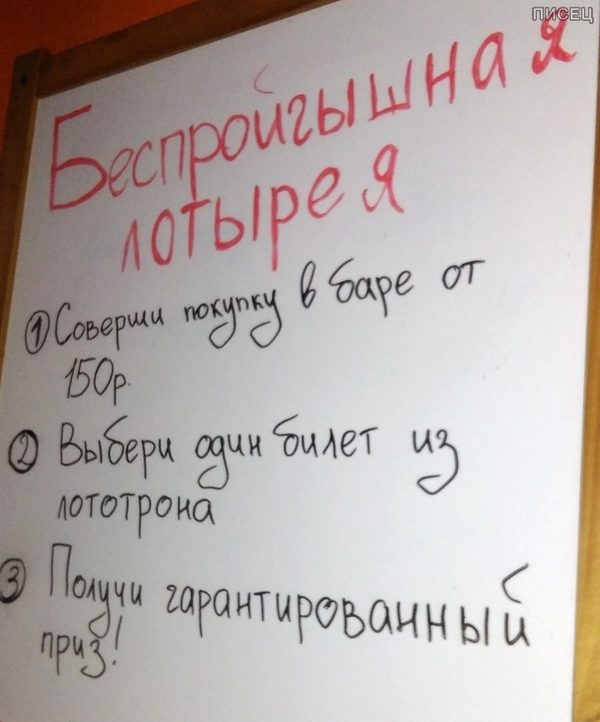 ПИСЕЦ
Беспройгышная
лотырея
① Соверши покупку в баре от
150р.
② Выбери один билет из
лототрона
③ Получи гарантированный
приз!